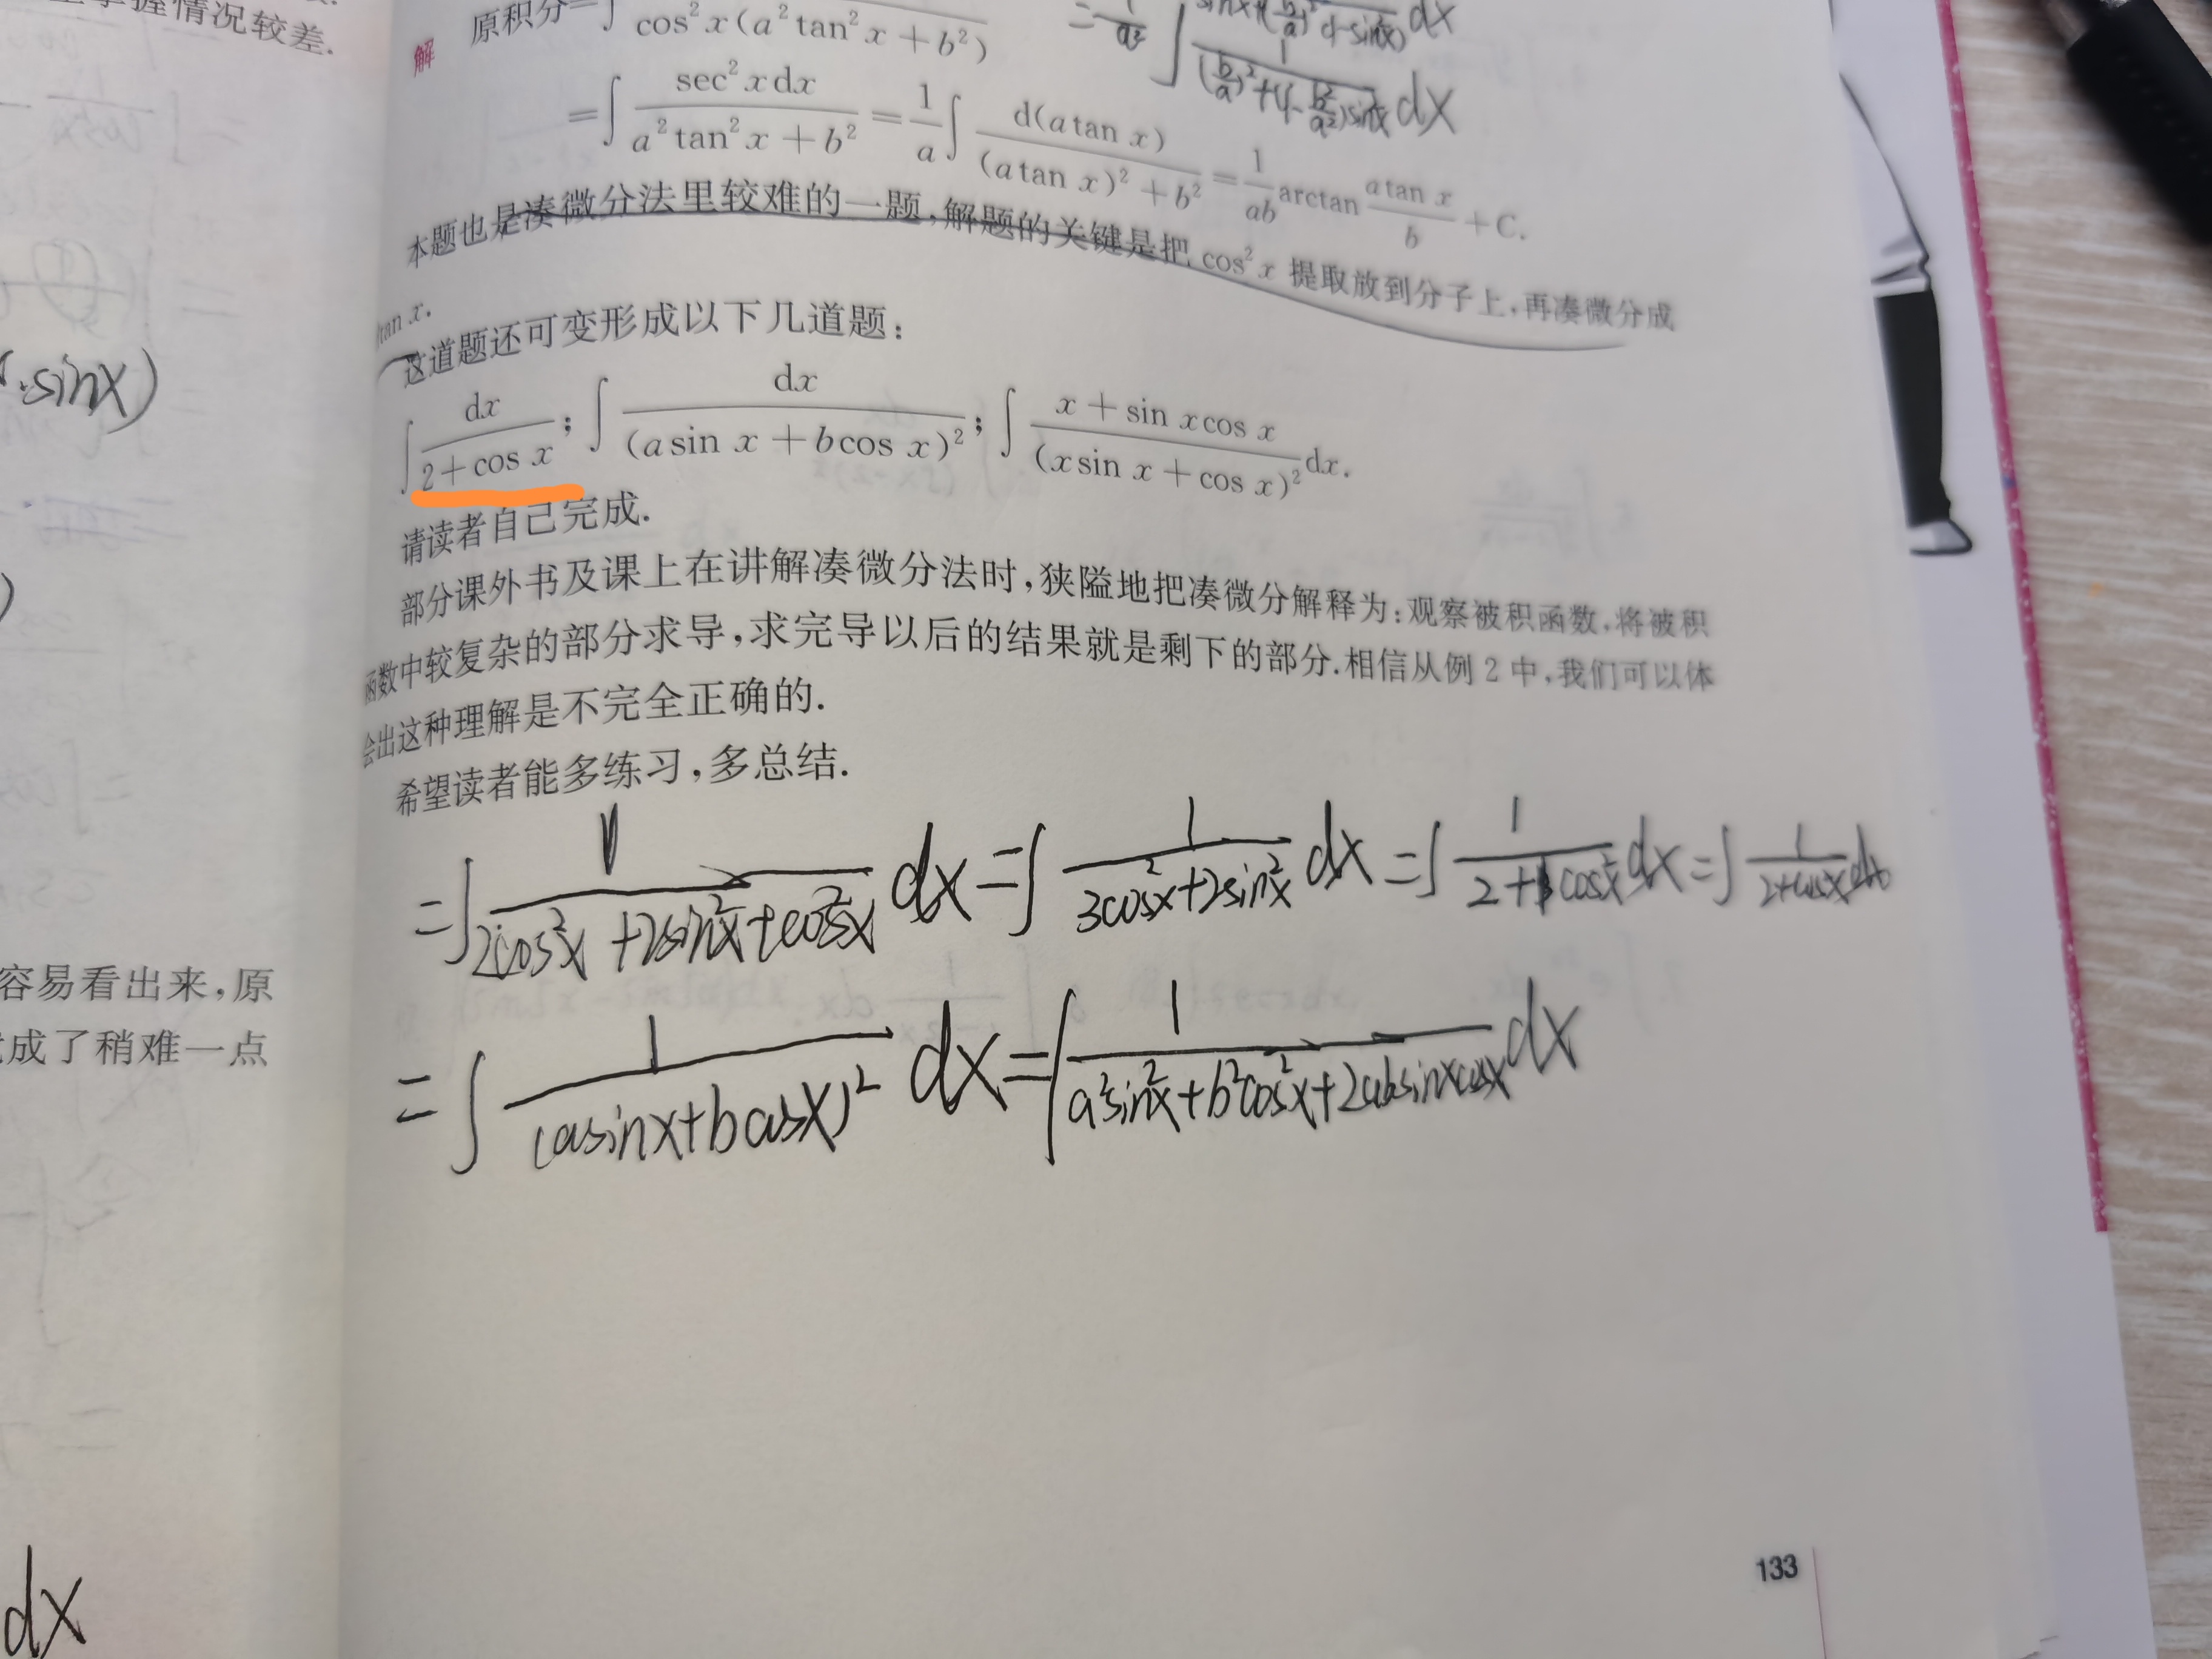 掌握情况较差.
解 原积分=∫ cos²x(a²tan²x+b²)
=∫ sec²xdx / (a²tan²x+b²) = 1/a ∫ d(atan x) / ((atan x)²+b²) = 1/ab arctan (atan x / b) +C.
∫ 1 / ((b/a)²+(1-b²/a²)sin²x) dx
本题也是凑微分法里较难的一题,解题的关键是把 cos²x 提取放到分子上,再凑微分成
tan x.
这道题还可变形成以下几道题:
·sinx)
∫ dx / (2+cos x); ∫ dx / (asin x+bcos x)²; ∫ (x+sin xcos x) / (xsin x+cos x)² dx.
请读者自己完成.
部分课外书及课上在讲解凑微分法时,狭隘地把凑微分解释为:观察被积函数,将被积
函数中较复杂的部分求导,求完导以后的结果就是剩下的部分.相信从例 2 中,我们可以体
会出这种理解是不完全正确的.
希望读者能多练习,多总结.
=∫ 1 / (2cos²x+2sin²x+cos²x) dx=∫ 1 / (3cos²x+2sin²x) dx=∫ 1 / (2+cos²x) dx=∫ 1 / (2+cos²x) dx
容易看出来,原
=∫ 1 / (asinx+bcosx)² dx=∫ 1 / (a²sin²x+b²cos²x+2absinxcosx) dx
成了稍难一点
dx
133